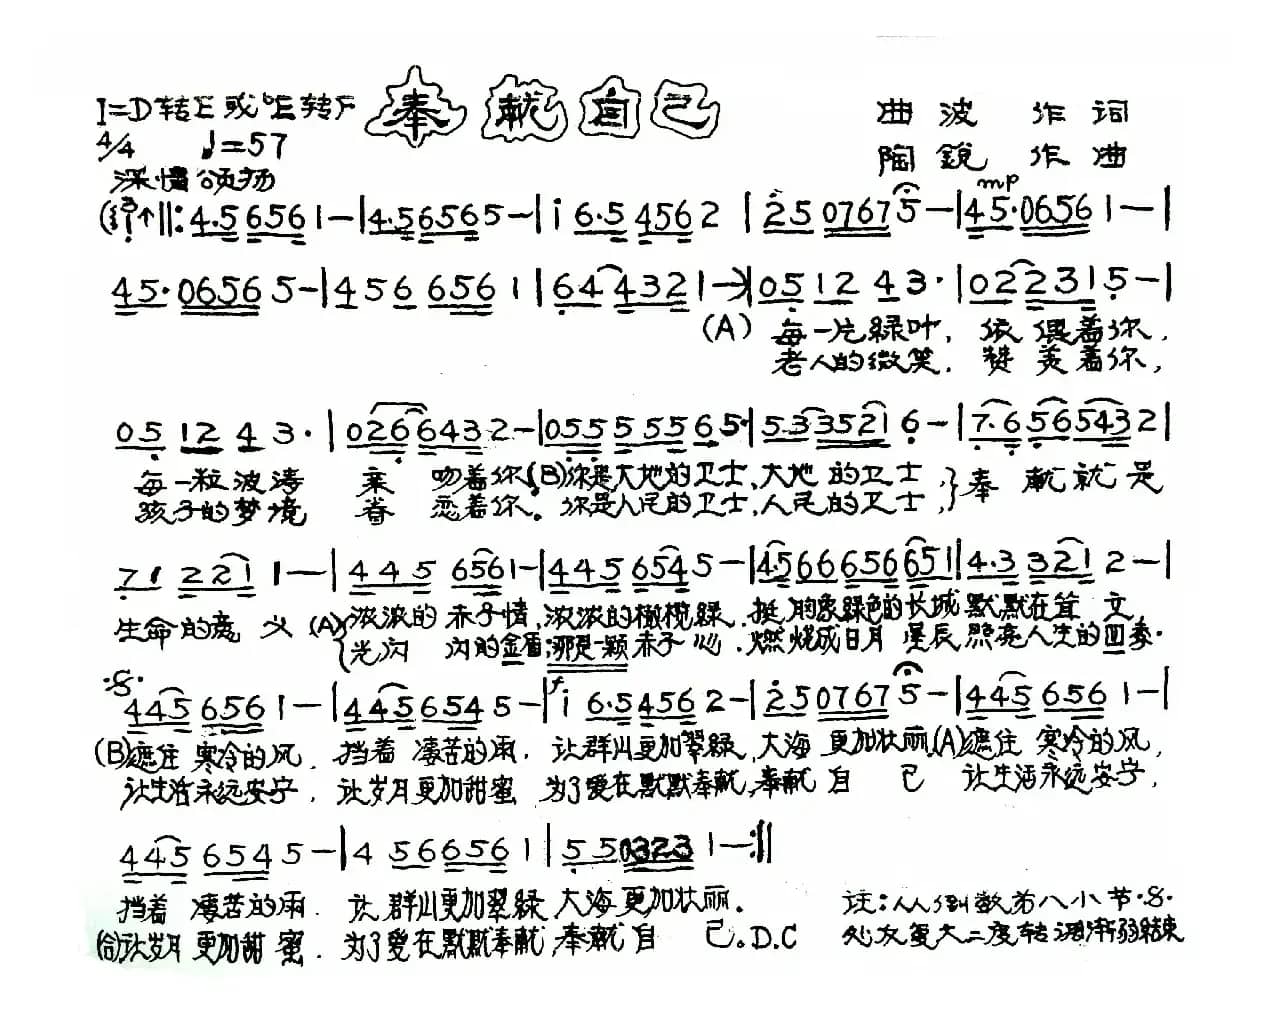 1=D转E或ᵇE转F 奉献自己 曲波 作词
4/4 ♩=57 陶锐 作曲
深情颂扬
mp
(サ ‖: 4·5 6561 — | 4·5 6565 — | i 6·5 4562 | 2̇5 07675 — | 45·06561 — |
45·06565 — | 456 6561 | 64 4321 — | 05 12 43· | 022315 — |
(A) 每一片緑叶,依偎着你,
老人的微笑,赞美着你,
05 12 43· | 02664 32 — | 055555 65· | 5335216 — | 7·6565432 |
每一粒波涛 亲吻着你,(B)你是大地的卫士,大地的卫士,}奉献就是
孩子的梦境 眷恋着你。你是人民的卫士,人民的卫士,
71 2211 — | 445 6561 — | 445 6545 — | 4566656651 | 4·3 3212 — |
生命的意义 (A){浓浓的赤子情,浓浓的橄榄緑,挺胸象緑色的长城默默在耸立.
光闪闪的金盾;那是一颗赤子心.燃烧成日月星辰照亮人生的四季.
·S·
445 6561 — | 4456545 — | f i 6·54562 — | 2̇5 07675 — | 445 6561 — |
(B)遮住寒冷的风,挡着凄苦的雨.让群山更加翠緑,大海更加壮丽.(A)遮住寒冷的风,
让生活永远安宁,让岁月更加甜蜜 为了爱在默默奉献,奉献自己 让生活永远安宁,
4456545 — | 4 566561 | 5503231 — :‖
挡着凄苦的雨.让群山更加翠緑 大海更加壮丽. 注:从倒数第八小节·S·
(合)让岁月更加甜蜜.为了爱在默默奉献,奉献自己。D.C 处反复大二度转调渐弱结束